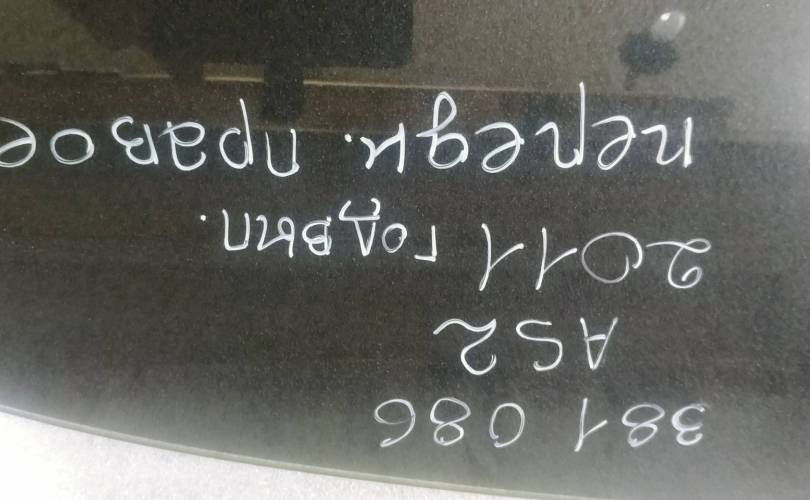 381 086
AS2
2011 год вып.
передн. правое